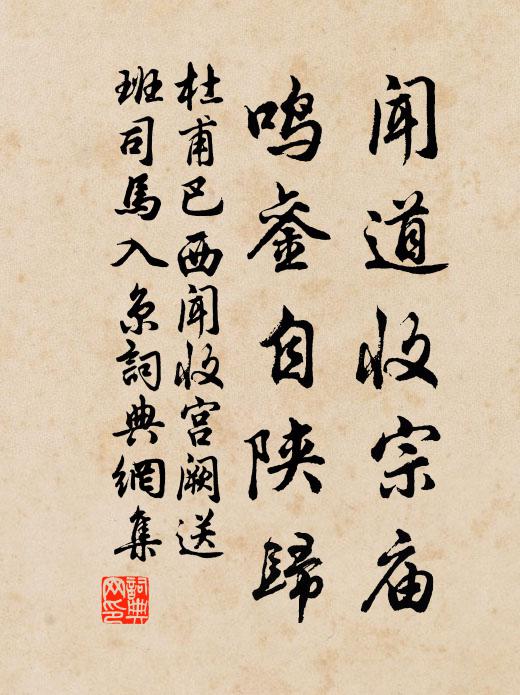 闻道收宗庙
鸣銮自陕歸
杜甫巴西闻收宫阙送
班司馬入京詞典網集
詞典
网印